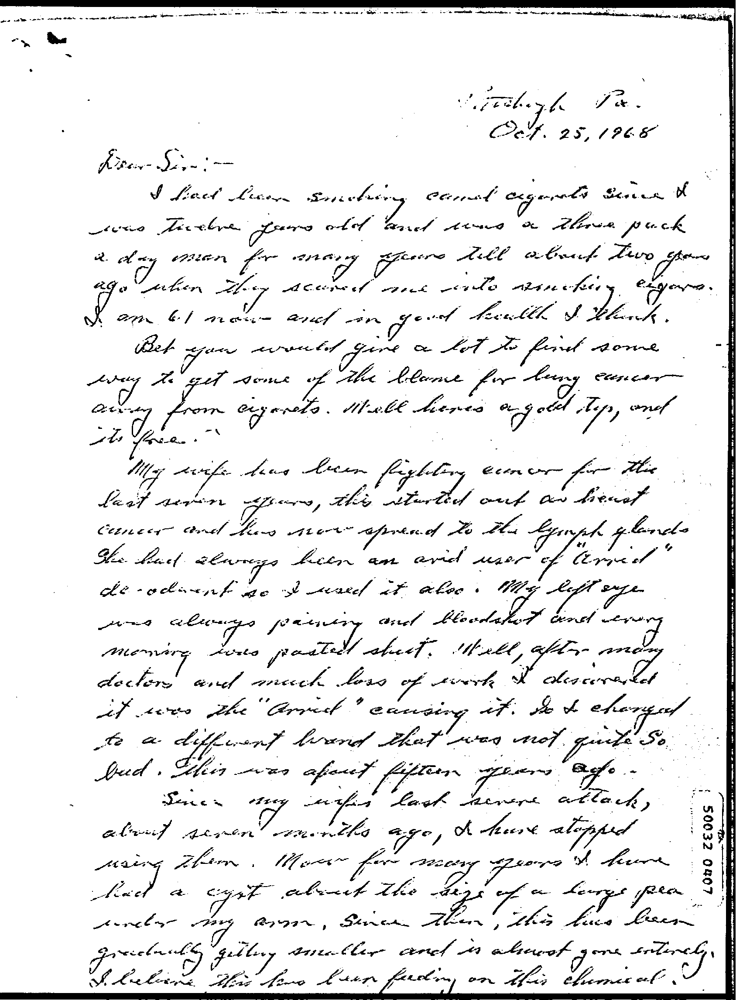 Pittsburgh Pa.
Oct. 25, 1968
Dear Sir:-
I had been smoking camel cigarets since I
was twelve years old and was a three pack
a day man for many years till about two years
ago when they scared me into smoking cigars.
I am 61 now and in good health I think.
Bet you would give a lot to find some
way to get some of the blame for lung cancer
away from cigarets. Well heres a good tip, and
its free.
My wife has been fighting cancer for the
last seven years, this started out as breast
cancer and has now spread to the lymph glands
She had always been an avid user of "Arrid"
de-odorant so I used it also. My left eye
was always paining and bloodshot and every
morning was pasted shut. Well, after many
doctors and much loss of work I discovered
it was the "Arrid" causing it. So I changed
to a different brand that was not quite so
bad. This was about fifteen years ago.
Since my wifes last severe attack,
about seven months ago, I have stopped
using them. Now for many years I have
had a cyst about the size of a large pea
under my arm. Since then, this has been
gradually getting smaller and is almost gone entirely.
I believe this has been feeding on this chemical.
50032 0407